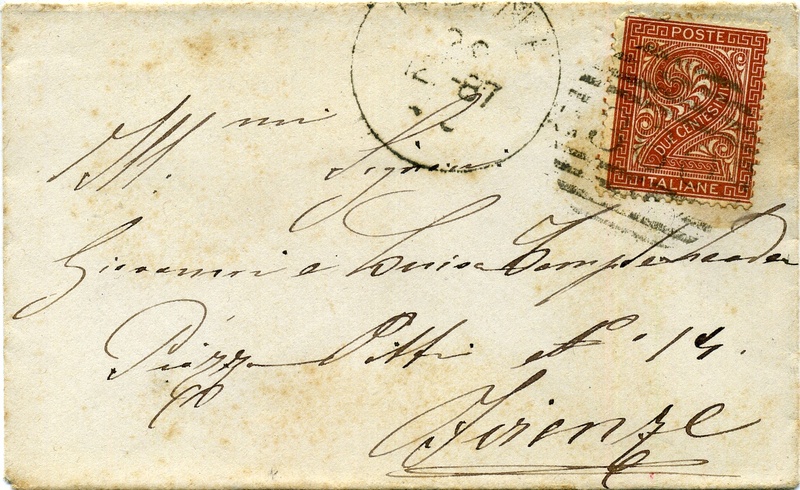 67
POSTE
DUE CENTESIMI
ITALIANE
Ill. mi Signori
Giovanni e Luisa
Piazza Pitti N° 14.
Firenze